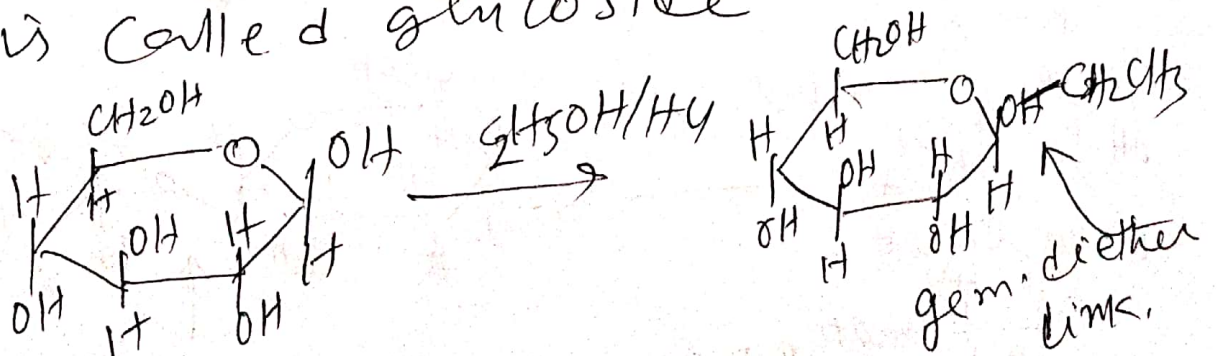 is called glucoside
CH2OH
CH2OH
H
H
O
OH
OH
H
H
OH
H
OH
C2H5OH/HCl
H
H
O
OH
CH2CH3
OH
H
H
OH
H
OH
gem. diether
link.